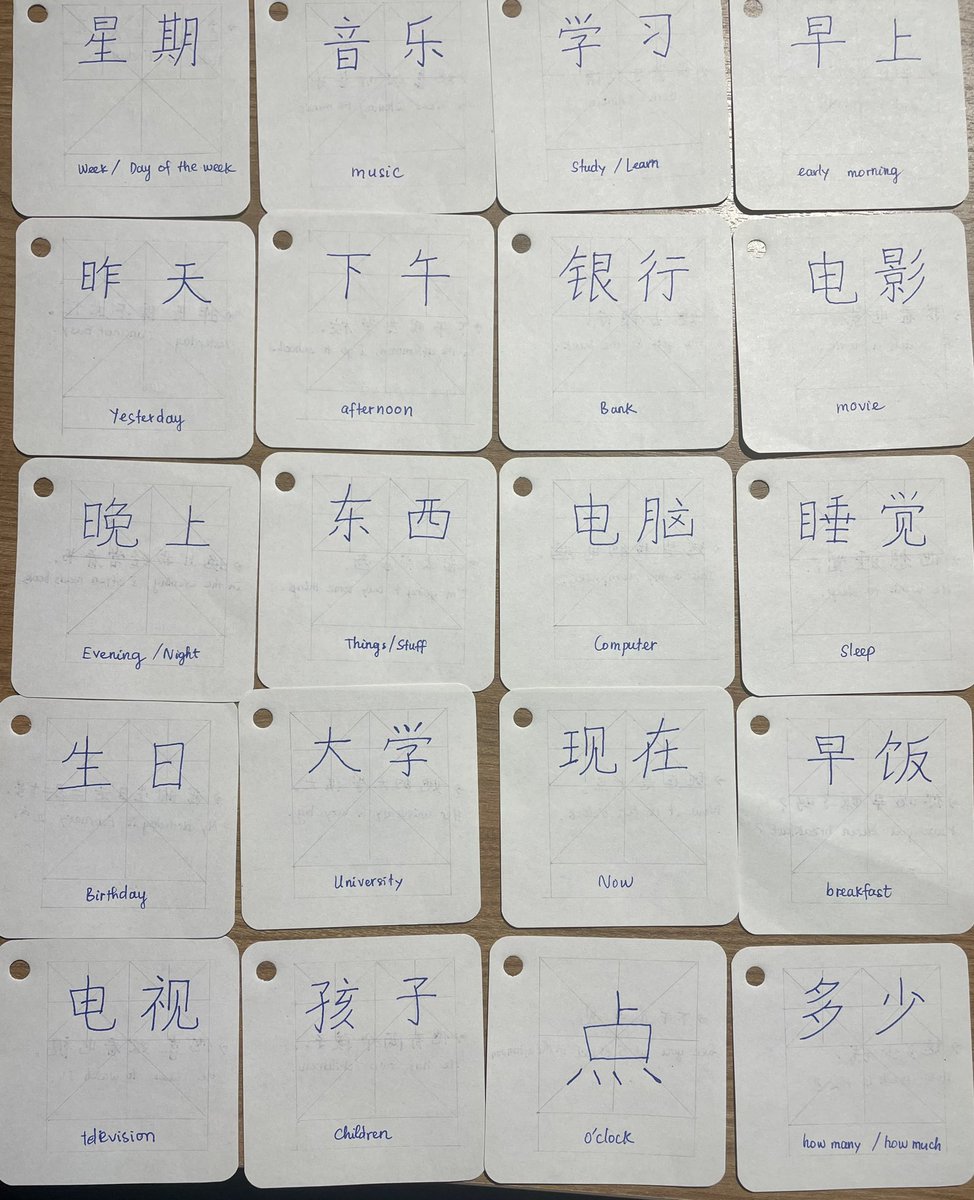 星期
Week / Day of the week
音乐
music
学习
Study / Learn
早上
early morning
昨天
Yesterday
下午
afternoon
银行
Bank
电影
movie
晚上
Evening / Night
东西
Things / Stuff
电脑
Computer
睡觉
Sleep
生日
Birthday
大学
University
现在
Now
早饭
breakfast
电视
television
孩子
Children
点
O'clock
多少
how many / how much